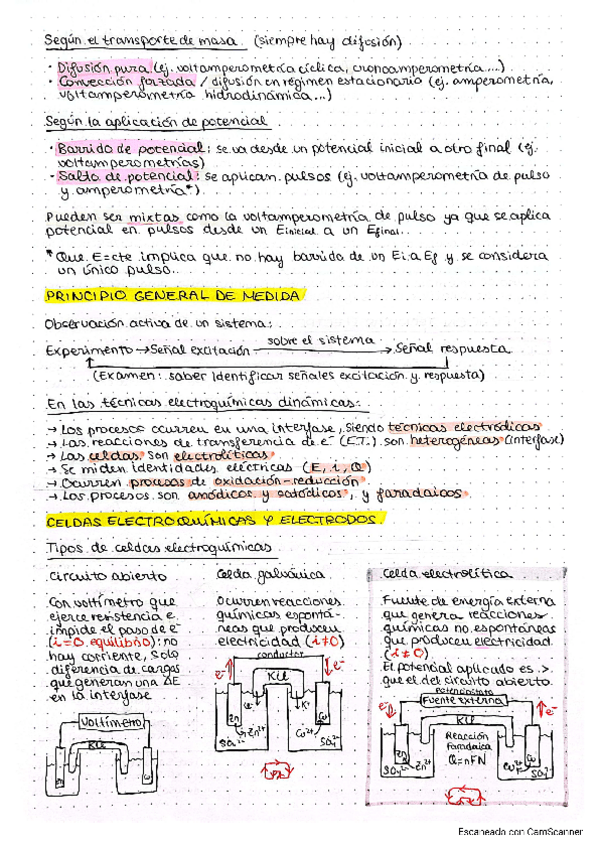 Según el transporte de masa (siempre hay difusión)
· Difusión pura (ej. voltamperometría cíclica, cronoamperometría...)
· Convección forzada / difusión en régimen estacionario (ej. amperometría,
voltamperometría hidrodinámica...)
Según la aplicación de potencial
· Barrido de potencial: se va desde un potencial inicial a otro final (ej.
voltamperometrías)
· Salto de potencial: se aplican pulsos (ej. voltamperometría de pulso
y amperometría*)
Pueden ser mixtas como la voltamperometría de pulso ya que se aplica
potencial en pulsos desde un Einicial a un Efinal.
* Que E=cte implica que no hay barrido de un Ei a Ef y se considera
un único pulso.
PRINCIPIO GENERAL DE MEDIDA
Observación activa de un sistema:
Experimento → Señal excitación sobre el sistema → Señal respuesta
(Examen: saber identificar señales excitación y respuesta)
En las técnicas electroquímicas dinámicas:
→ Los procesos ocurren en una interfase, siendo técnicas electródicas
→ Las reacciones de transferencia de e⁻ (E.T.) son heterogéneas (interfase)
→ Las celdas son electrolíticas
→ Se miden identidades eléctricas (E, i, Q)
→ Ocurren procesos de oxidación-reducción
→ Los procesos son anódicos y catódicos, y faradaicos
CELDAS ELECTROQUÍMICAS Y ELECTRODOS
Tipos de celdas electroquímicas
Circuito abierto
Con voltímetro que
ejerce resistencia e
impide el paso de e⁻
(i=0, equilibrio): no
hay corriente, solo
diferencia de cargas
que generan una ΔE
en la interfase
Voltímetro
KCl
Celda galvánica
Ocurren reacciones
químicas espontá-
neas que producen
electricidad (i≠0)
conductor
e⁻
KCl
Cl⁻ K⁺
Zn Cu
Zn²⁺ Cu²⁺
SO₄²⁻ SO₄²⁻
Celda electrolítica
Fuente de energía externa
que genera reacciones
químicas no espontáneas
que producen electricidad
(i≠0)
El potencial aplicado es >
que el del circuito abierto
potenciostato
Fuente externa
e⁻ e⁻
KCl
Reacción
Faradaica
Q=nFN
Zn
Zn²⁺ Cu²⁺
SO₄²⁻ SO₄²⁻
Escaneado con CamScanner